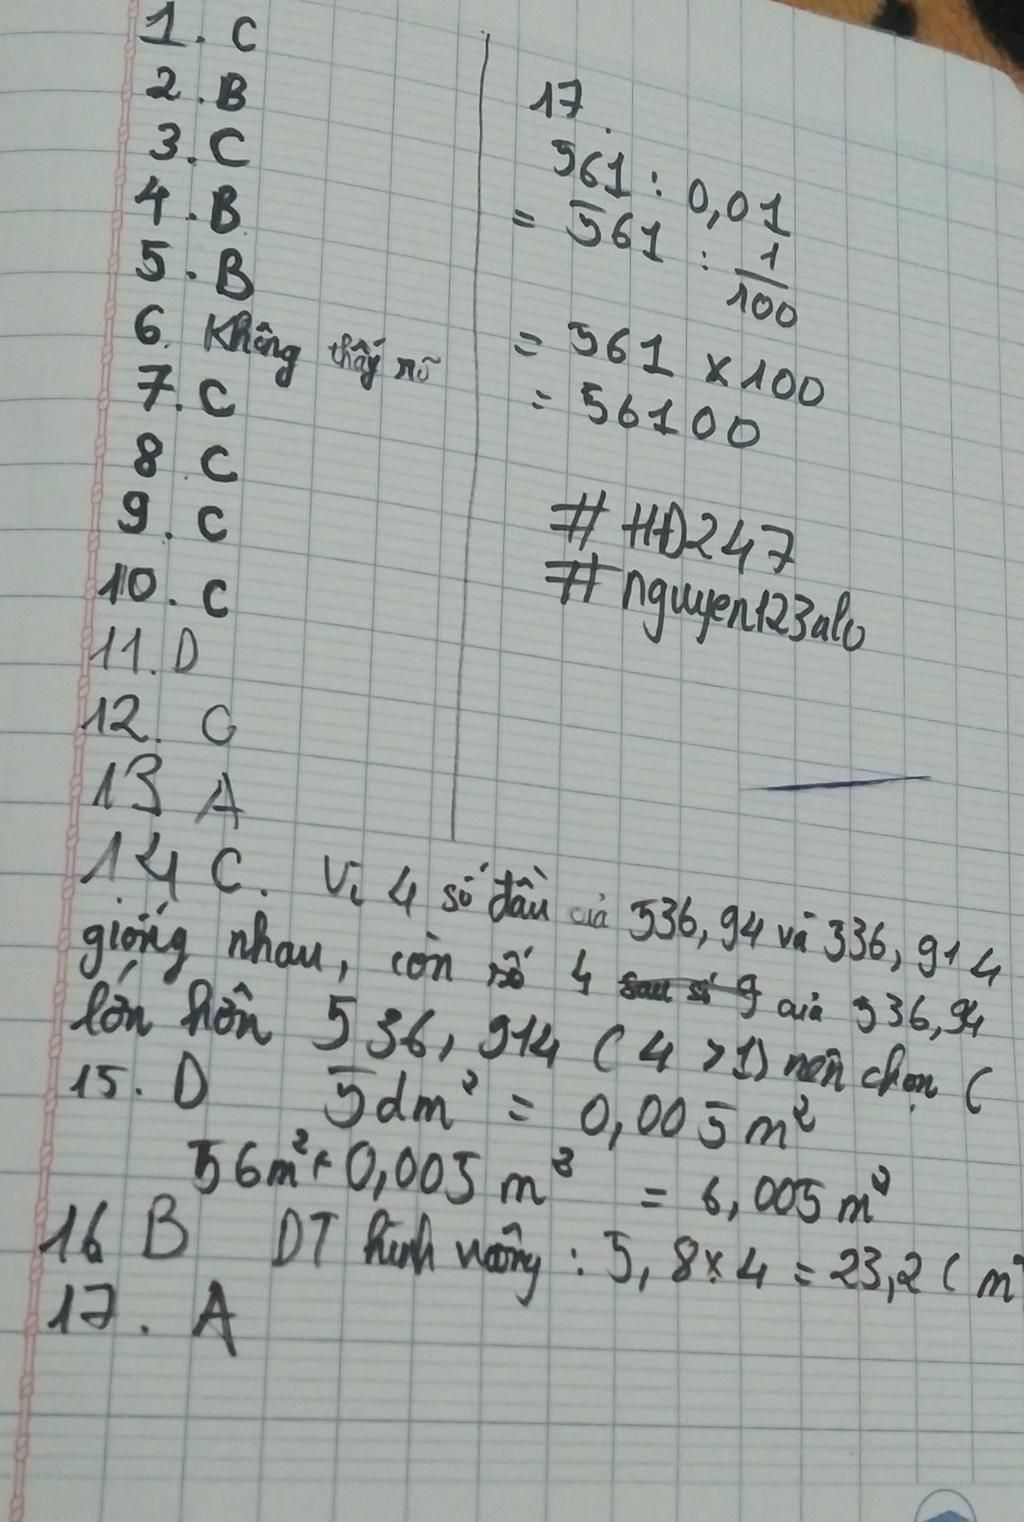 1. C
2. B
3. C
4. B
5. B
6. Không thấy rõ
7. C
8 C
9. C
10. C
11. D
12. C
13 A
17.
561 : 0,01
= 561 : 1/100
= 561 x 100
= 56100
# HĐ247
# nguyen123alo
14 C. Vì 4 số đầu của 536,94 và 536,914
giống nhau, còn số 4 của 536,94
lớn hơn 536,914 (4 > 1) nên chọn C
15. D 5dm² = 0,005m²
56m² + 0,005 m³ = 6,005m²
16 B DT hình vuông : 5,8 x 4 = 23,2 (m²
17. A